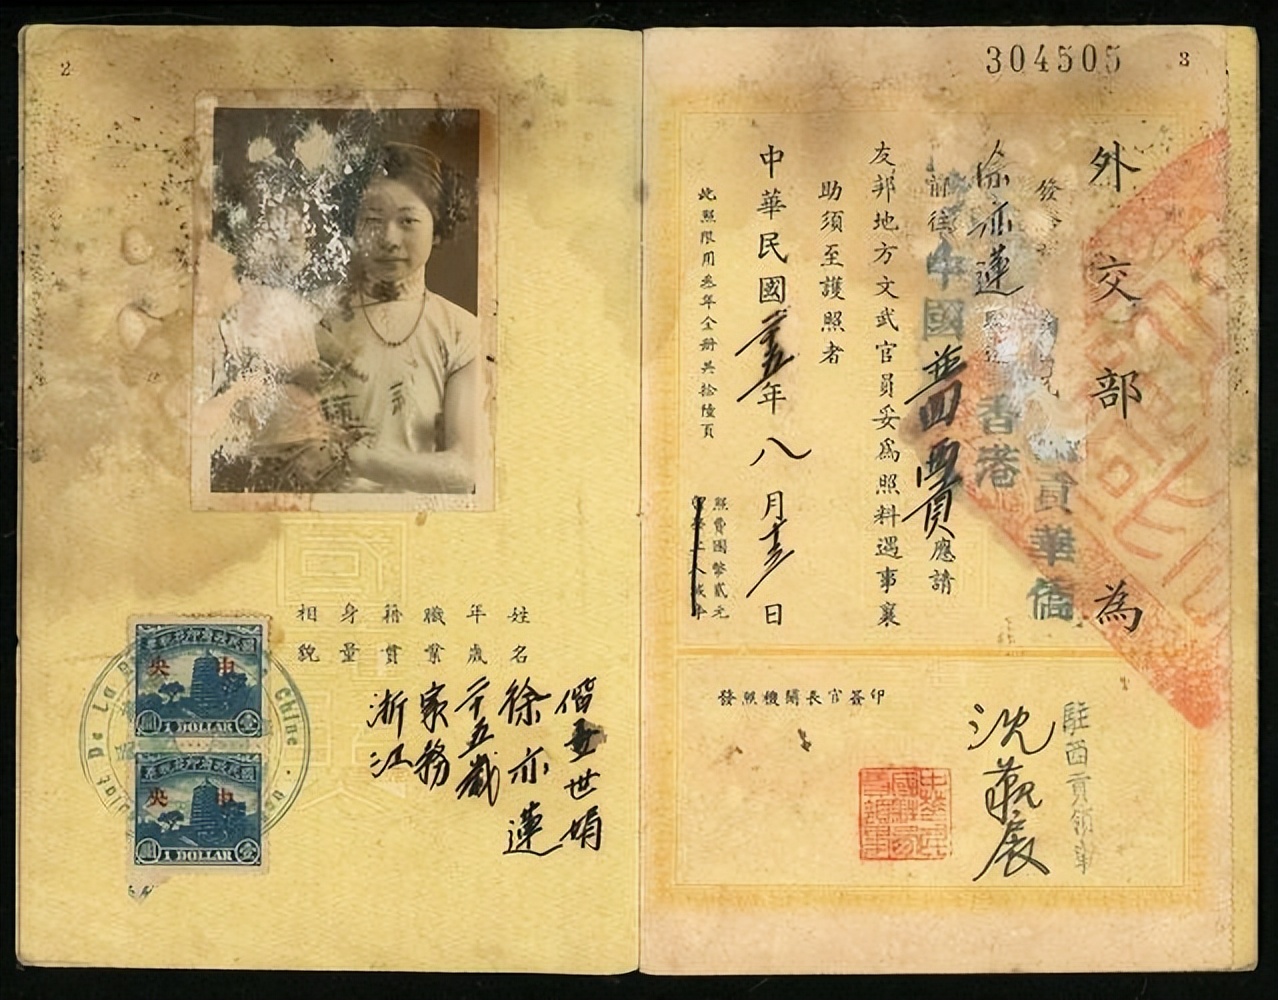 2
相貌
身量
籍貫
職業
年歲
姓名
浙江
家務
二十五歲
徐亦蓮
偕 世娟
國民政府印花稅票
中央
壹圓
1 DOLLAR
國民政府印花稅票
中央
壹圓
1 DOLLAR
De La
Chine
304505
3
外交部 為
發給
西貢華僑
徐亦蓮
香港
前往中國並回西貢應請
友邦地方文武官員妥為照料遇事襄
助須至護照者
中華民國廿五年八月十三日
此照限用叁年全冊共拾陸頁
照費國幣貳元
發照機關長官簽印
駐西貢領事
沈覲扆